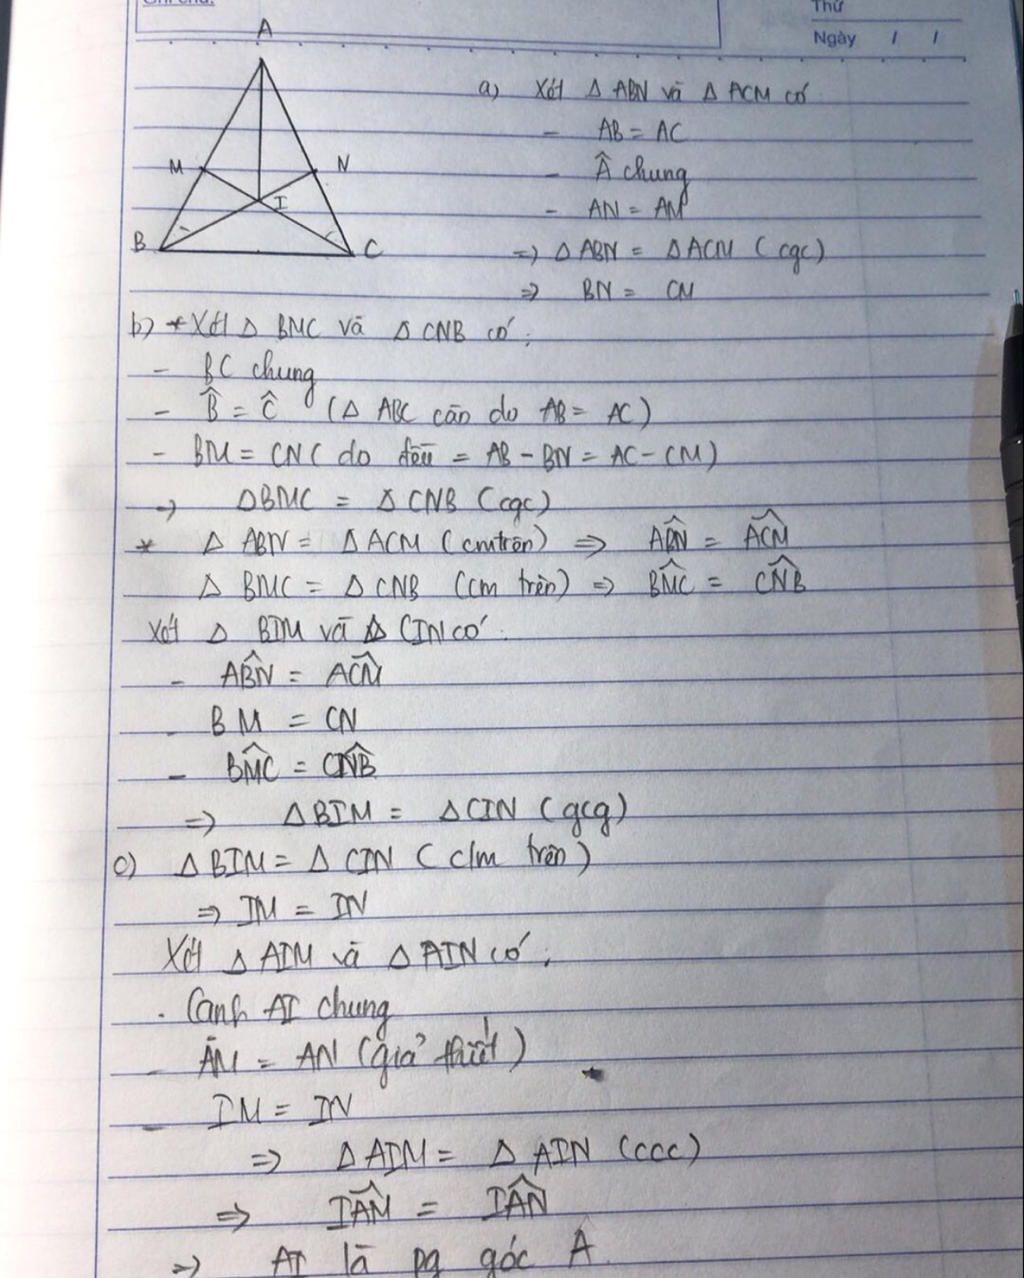 Ghi chú:
Thứ
Ngày / /
A
M
N
I
B
C
a) Xét Δ ABN và Δ ACM có
- AB = AC
- Â chung
- AN = AM
=> Δ ABN = Δ ACM (cgc)
=> BN = CM
b) * Xét Δ BMC và Δ CNB có:
- BC chung
- B̂ = Ĉ (Δ ABC cân do AB = AC)
- BM = CN ( do đều = AB - BN = AC - CM)
=> ΔBMC = Δ CNB (cgc)
* Δ ABN = Δ ACM (cmtrên) => AB̂N = AĈM
Δ BMC = Δ CNB (cm trên) => BM̂C = CN̂B
Xét Δ BIM và Δ CIN có:
- AB̂N = AĈM
- BM = CN
- BM̂C = CN̂B
=> ΔBIM = ΔCIN (gcg)
c) Δ BIM = Δ CIN ( c/m trên)
=> IM = IN
Xét Δ AIM và Δ AIN có:
- Cạnh AI chung
- AM = AN (giả thiết)
- IM = IN
=> Δ AIM = Δ AIN (ccc)
=> IÂM = IÂN
=> AI là pg góc A